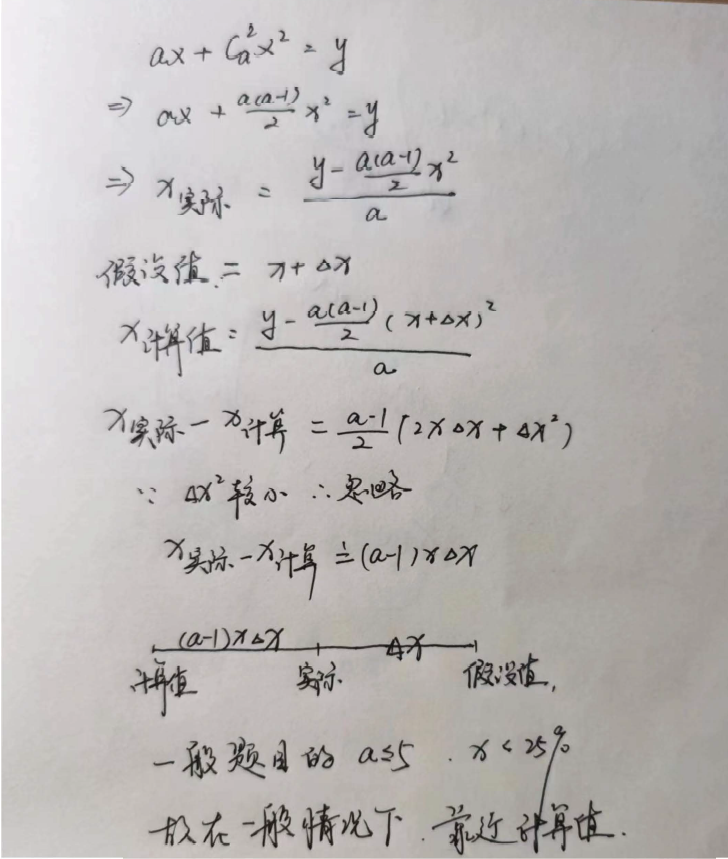 ax + C_a^2 x^2 = y
⇒ ax + \frac{a(a-1)}{2} x^2 = y
⇒ x实际 = \frac{y - \frac{a(a-1)}{2} x^2}{a}
假设值 = x + Δx
x计算值 = \frac{y - \frac{a(a-1)}{2} (x+Δx)^2}{a}
x实际 - x计算 = \frac{a-1}{2} (2xΔx + Δx^2)
∵ Δx^2 较小 ∴ 忽略
x实际 - x计算 ≐ (a-1)xΔx
(a-1)xΔx Δx
计算值 实际 假设值
一般题目的 a≤5 . x < 25%
故在一般情况下, 靠近计算值.